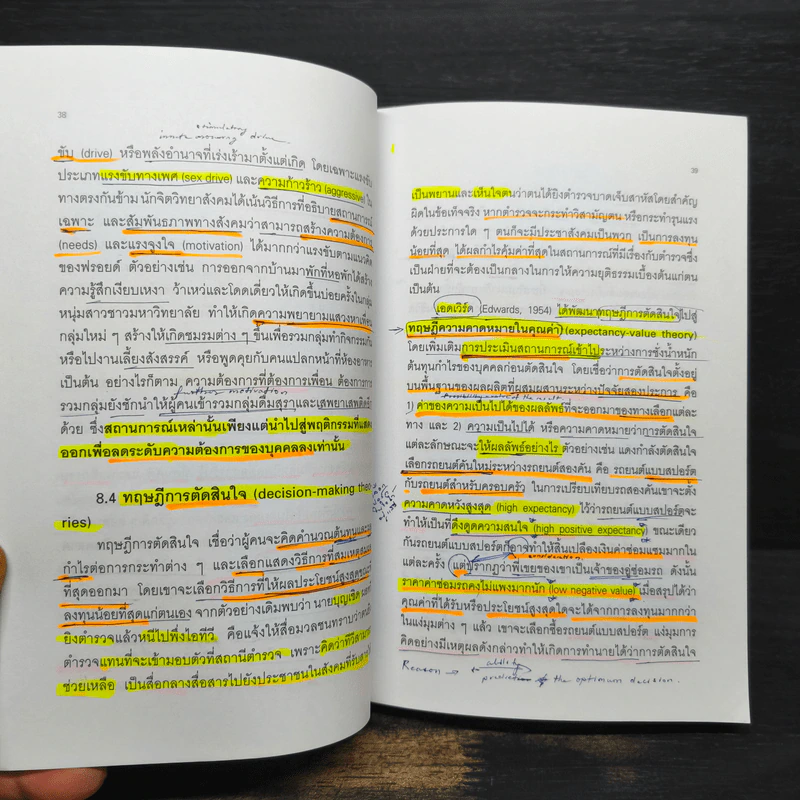 38
stimulatory
innate arousing drive
ขับ (drive) หรือพลังอำนาจที่เร่งเร้ามาตั้งแต่เกิด โดยเฉพาะแรงขับ
ประเภทแรงขับทางเพศ (sex drive) และความก้าวร้าว (aggressive) ใน
ทางตรงกันข้าม นักจิตวิทยาสังคมได้เน้นวิธีการที่อธิบายสถานการณ์
เฉพาะ และสัมพันธภาพทางสังคมว่าสามารถสร้างความต้องการ
(needs) และแรงจูงใจ (motivation) ได้มากกว่าแรงขับตามแนวคิด
ของฟรอยด์ ตัวอย่างเช่น การออกจากบ้านมาพักที่หอพักได้สร้าง
ความรู้สึกเงียบเหงา ว้าเหว่และโดดเดี่ยวให้เกิดขึ้นบ่อยครั้งในกลุ่ม
หนุ่มสาวชาวมหาวิทยาลัย ทำให้เกิดความพยายามแสวงหาเพื่อน
กลุ่มใหม่ ๆ สร้างให้เกิดชมรมต่าง ๆ ขึ้นเพื่อรวมกลุ่มทำกิจกรรมกัน
หรือไปงานเลี้ยงสังสรรค์ หรือพูดคุยกับคนแปลกหน้าที่ห้องอาหาร
เป็นต้น อย่างไรก็ตาม ความต้องการที่ต้องการเพื่อน ต้องการการ
motivation
รวมกลุ่มยังชักนำให้ผู้คนเข้ารวมกลุ่มดื่มสุราและเสพยาเสพติดอีก
ด้วย ซึ่งสถานการณ์เหล่านั้นเพียงแต่นำไปสู่พฤติกรรมที่แสดง
ออกเพื่อลดระดับความต้องการของบุคคลลงเท่านั้น
8.4 ทฤษฎีการตัดสินใจ (decision-making theo-
ries)
ทฤษฎีการตัดสินใจ เชื่อว่าผู้คนจะคิดคำนวณต้นทุนและผล
กำไรต่อการกระทำต่าง ๆ และเลือกแสดงวิธีการที่สมเหตุสมผล
ที่สุดออกมา โดยเขาจะเลือกวิธีการที่ให้ผลประโยชน์สูงสุดขณะที่
ลงทุนน้อยที่สุดแก่ตนเอง จากตัวอย่างเดิมพบว่า นายบุญเชิด
ยิงตำรวจแล้วหนีไปพึ่งไอทีวี คือแจ้งให้สื่อมวลชนทราบว่าตน
ตำรวจ แทนที่จะเข้ามอบตัวที่สถานีตำรวจ เพราะคิดว่าทีวีสามารถ
ช่วยเหลือ เป็นสื่อกลางสื่อสารไปยังประชาชนในสังคมที่รับ
39
เป็นพยานและเห็นใจตนว่าตนได้ยิงตำรวจบาดเจ็บสาหัสโดยสำคัญ
ผิดในข้อเท็จจริง หากตำรวจจะกระทำวิสามัญตน หรือกระทำรุนแรง
ด้วยประการใด ๆ ตนก็จะมีประชาสังคมเป็นพวก เป็นการลงทุน
น้อยที่สุด ได้ผลกำไรคุ้มค่าที่สุดในสถานการณ์ที่มีเรื่องกับตำรวจซึ่ง
เป็นฝ่ายที่จะต้องเป็นกลางในการให้ความยุติธรรมเบื้องต้นแก่ตน
เป็นต้น
เอดเวิร์ด (Edwards, 1954) ได้พัฒนาทฤษฎีการตัดสินใจไปสู่
ทฤษฎีความคาดหมายในคุณค่า (expectancy-value theory)
โดยเพิ่มเติมการประเมินสถานการณ์เข้าไประหว่างการชั่งน้ำหนัก
ต้นทุนกำไรของบุคคลก่อนตัดสินใจ โดยเชื่อว่าการตัดสินใจตั้งอยู่
บนพื้นฐานของผลผลิตที่ผสมผสานระหว่างปัจจัยสองประการ คือ
1) ค่าของความเป็นไปได้ของผลลัพธ์ที่จะออกมาของทางเลือกแต่ละ
ทาง และ 2) ความเป็นไปได้ หรือความคาดหมายว่าการตัดสินใจ
แต่ละลักษณะจะให้ผลลัพธ์อย่างไร ตัวอย่างเช่น แดงกำลังตัดสินใจ
เลือกรถยนต์คันใหม่ระหว่างรถยนต์สองคัน คือ รถยนต์แบบสปอร์ต
กับรถยนต์สำหรับครอบครัว ในการเปรียบเทียบรถสองคันเขาจะตั้ง
ความคาดหวังสูงสุด (high expectancy) ไว้ว่ารถยนต์แบบสปอร์ตจะ
ทำให้เป็นที่ดึงดูดความสนใจ (high positive expectancy) ขณะเดียว
กันรถยนต์แบบสปอร์ตก็อาจทำให้สิ้นเปลืองเงินค่าซ่อมแซมมากใน
แต่ละครั้ง แต่ปรากฏว่าพี่เขยของเขาเป็นเจ้าของอู่ซ่อมรถ ดังนั้น
ราคาค่าซ่อมรถคงไม่แพงมากนัก (low negative value) เมื่อสรุปได้ว่า
คุณค่าที่ได้รับหรือประโยชน์สูงสุดใดจะได้จากการลงทุนมากกว่า
ในแง่มุมต่าง ๆ แล้ว เขาจะเลือกซื้อรถยนต์แบบสปอร์ต แง่มุมการ
คิดอย่างมีเหตุผลดังกล่าวทำให้เกิดการทำนายได้ว่าการตัดสินใจ
Reason → ability
prediction of the optimum decision.